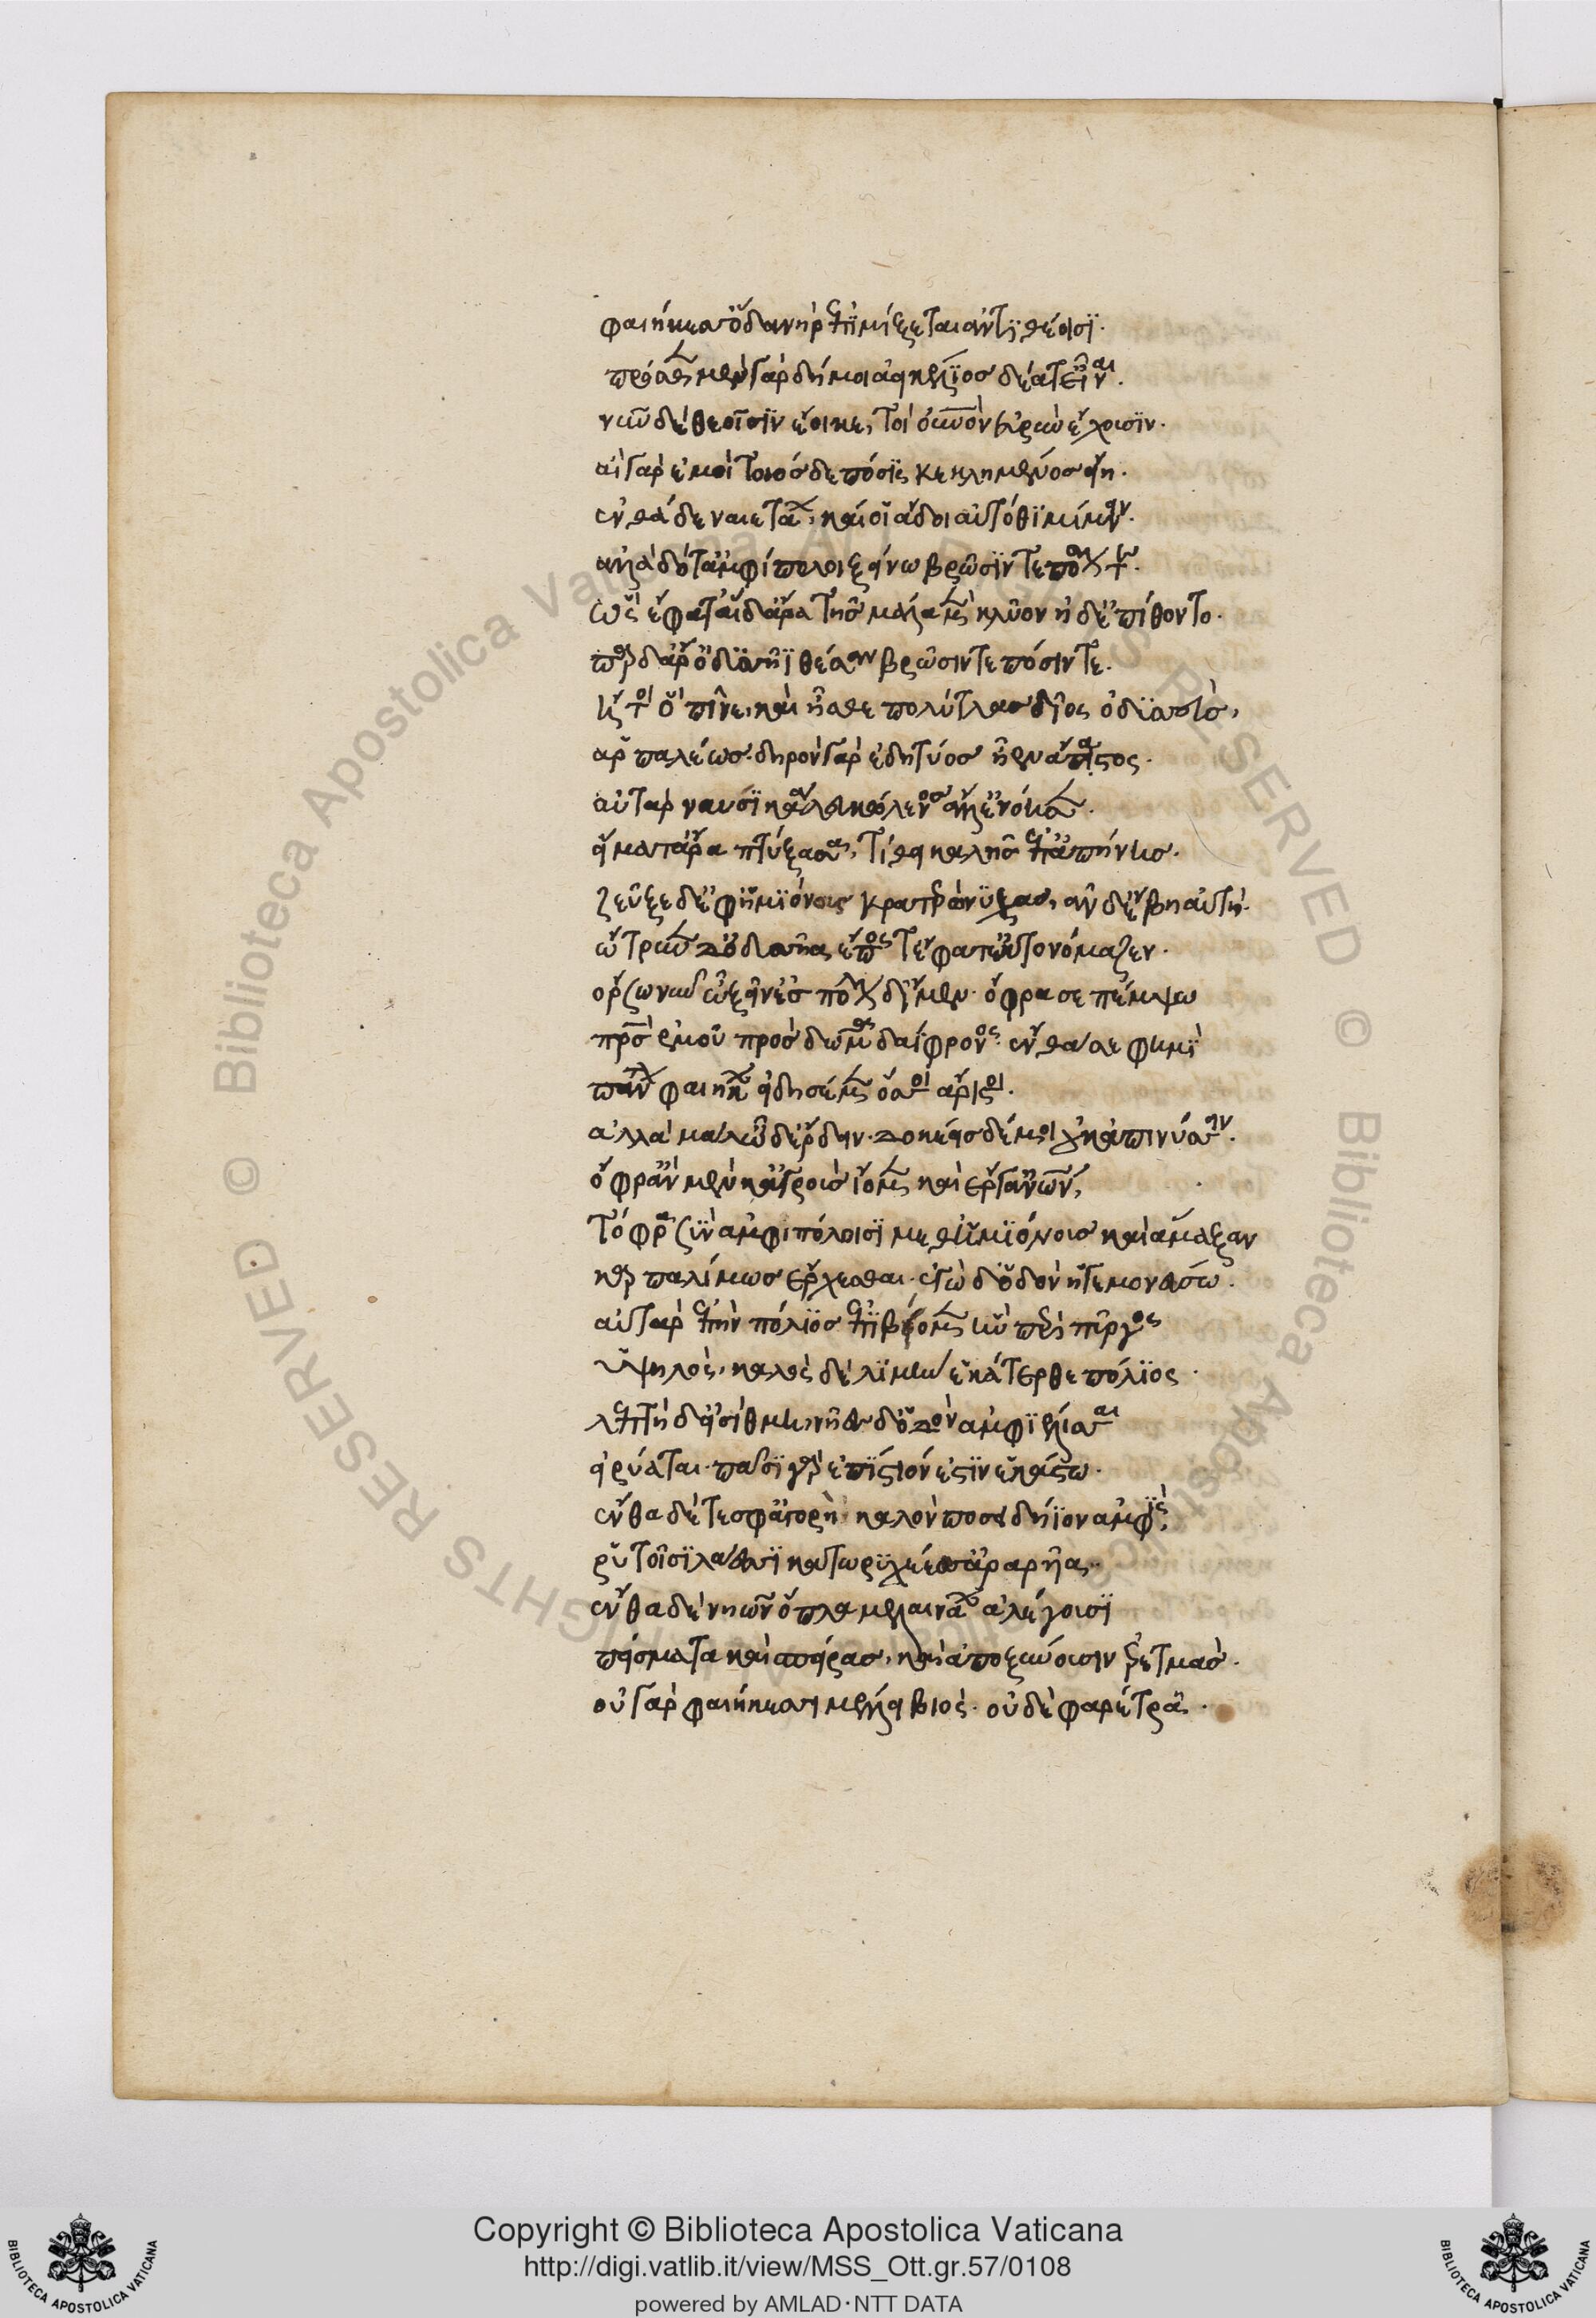 φαιήκεσσ' ὅδ' ἀνὴρ ἐπιμίξεται ἀντιθέοισι.
πρόσθεν μὲν γὰρ δή μοι ἀεικέλιος δέατ' εἶναι.
νῦν δὲ θεοῖσιν ἔοικε, τοὶ οὐρανὸν εὐρὺν ἔχουσιν.
αἲ γὰρ ἐμοὶ τοιόσδε πόσις κεκλημένος εἴη.
ἐνθάδε ναιετάων, καί οἱ ἅδοι αὐτόθι μίμνειν.
ἀλλὰ δότ' ἀμφίπολοι ξείνω βρῶσίν τε πόσιν τε.
ὣς ἔφατ' αἱ δ' ἄρα τῆς μάλα μὲν κλύον ἠδ' ἐπίθοντο.
πὰρ δ' ἄρ' ὀδυσσῆϊ θέσαν βρῶσίν τε πόσιν τε.
ἤτοι ὁ πῖνε, καὶ ἦσθε πολύτλας δῖος ὀδυσσεὺς,
ἁρπαλέως. δηρὸν γὰρ ἐδητύος ἦεν ἄπαστος.
αὐτὰρ ναυσικάα λευκώλενος ἄλλ' ἐνόησεν.
εἵματ' ἄρα πτύξασα, τίθει καλῆς ἐπ' ἀπήνης.
ζεῦξε δ' ἐφ' ἡμιόνους κρατερώνυχας, ἂν δ' ἔβη αὐτή.
ὤτρυνεν δ' ὀδυσῆα, ἔπος τ' ἔφατ' ἔκ τ' ὀνόμαζεν.
ὄρσεο νῦν ὦ ξεῖν' ἐς πόλιν δ' ἴμεν. ὄφρα σε πέμψω
πατρὸς ἐμοῦ πρὸς δῶμα δαΐφρονος. ἔνθα σε φημὶ
πάντων φαιήκων εἰδησέμεν ὅσσοι ἄριστοι.
ἀλλὰ μάλ' ὧδ' ἔρδειν. δοκέεις δέ μοι οὐκ ἀπινύσσειν.
ὄφρ' ἂν μέν κ' ἀγροὺς ἴομεν καὶ ἔργ' ἀνθρώπων,
τόφρα σὺν ἀμφιπόλοισι μεθ' ἡμιόνους καὶ ἄμαξαν
καρπαλίμως ἔρχεσθαι. ἐγὼ δ' ὁδὸν ἡγεμονεύσω.
αὐτὰρ ἐπὴν πόλιος ἐπιβήομεν ἣν πέρι πύργος
ὑψηλὸς, καλὸς δὲ λιμὴν ἑκάτερθε πόλιος
λεπτὴ δ' εἰσίθμη, νῆες δ' ὁδὸν ἀμφιέλισσαι
εἰρύαται. πᾶσι γὰρ ἐπίστιόν ἐστιν ἑκάστω.
ἔνθα δέ τε σφ' ἀγορὴ καλὸν ποσιδήϊον ἀμφὶς,
ῥυτοῖσι λάεσσι κατωρυχέεσσ' ἀραρῆα.
ἔνθα δὲ νηῶν ὅπλα μελαινάων ἀλέγουσι
πείσματα καὶ σπείρας, καὶ ἀποξύουσιν ἐρετμάς.
οὐ γὰρ φαιήκεσσι μέλει βιὸς. οὐδὲ φαρέτρα.
Copyright © Biblioteca Apostolica Vaticana
http://digi.vatlib.it/view/MSS_Ott.gr.57/0108
powered by AMLAD·NTT DATA